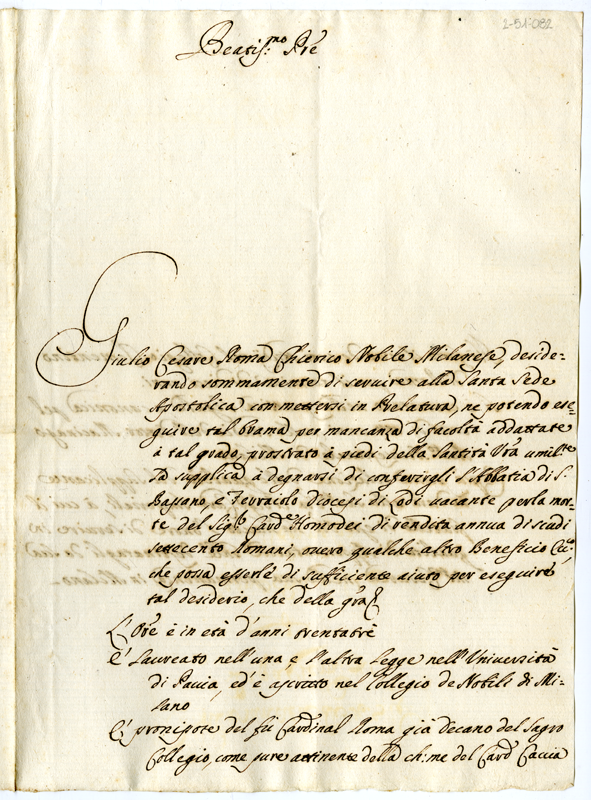 2-51-082
Beatiss.mo Pre
Giulio Cesare Roma Chierico Nobile Milanese, deside=
rando sommamente di servire alla Santa Sede
Apostolica con mettersi in Prelatura, ne potendo ese=
guire tal brama per mancanza di facoltà addattate
à tal grado, prostrato à piedi della Santità Vra umilte
La supplica à degnarsi di conferirgli l'Abbatia di S.
Bassano, e Ferraiolo diocesi di Lodi vacante per la mor=
te del Sigr Carde Homodei di rendita annua di scudi
settecento Romani, overo quelche altro Beneficio
che possa esserle di sufficiente aiuto per eseguire
tal desiderio, che della gra
L'Ore è in età d'anni trentatrè
E' Laureato nell'una, e l'altra Legge nell'Università
di Pavia, ed è ascritto nel Collegio de Nobili di Mi=
lano
E' pronipote del fù Cardinal Roma già decano del Sagro
Collegio, come pure attinente della ch: me del Card Caccia